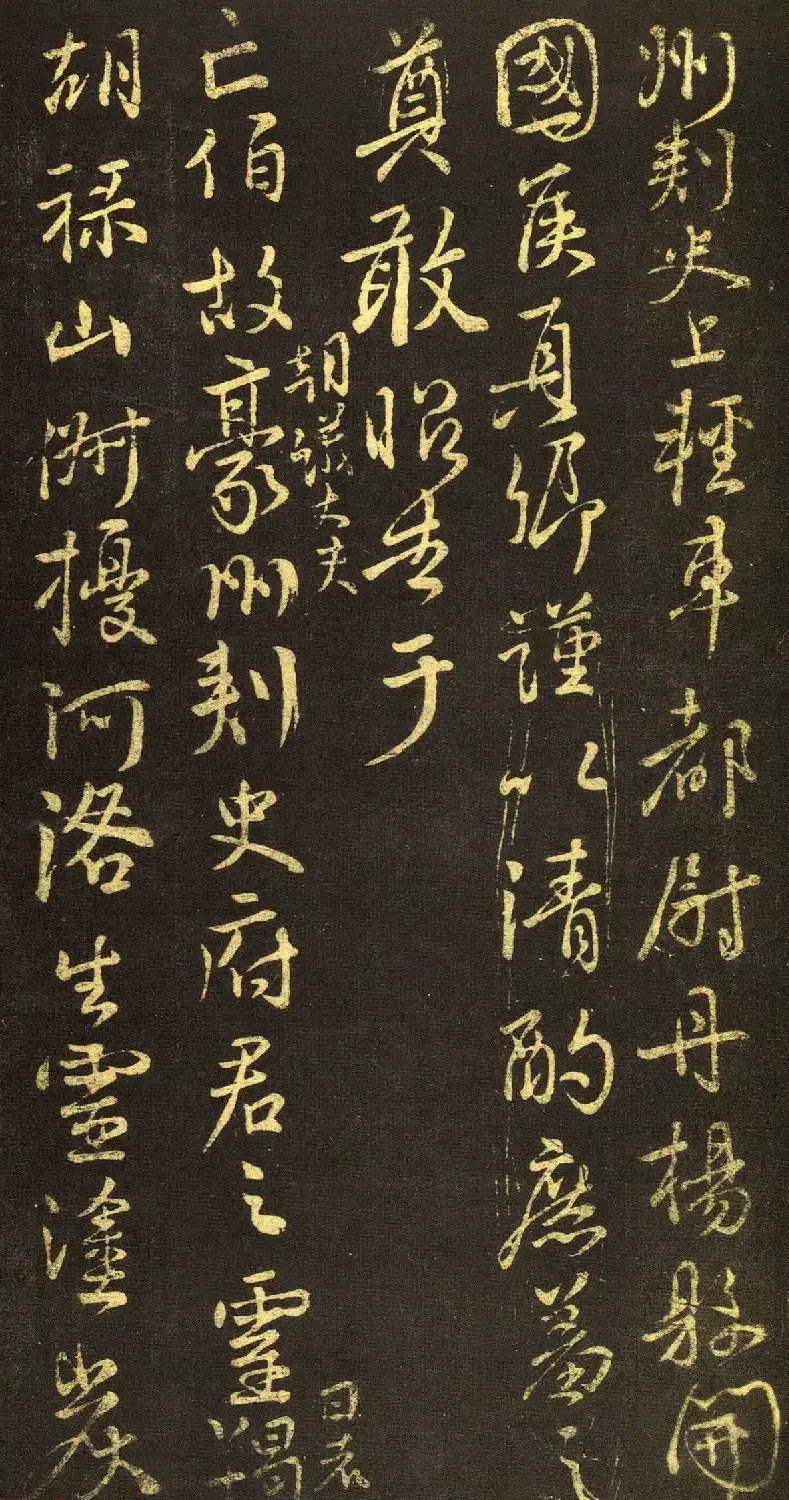 州刺史上輕車都尉丹楊縣開
國侯真卿謹以清酌庶羞之
奠敢昭告于
朝議大夫
亡伯故豪州刺史府君之靈
日者
羯
胡祿山俶擾河洛生靈塗炭